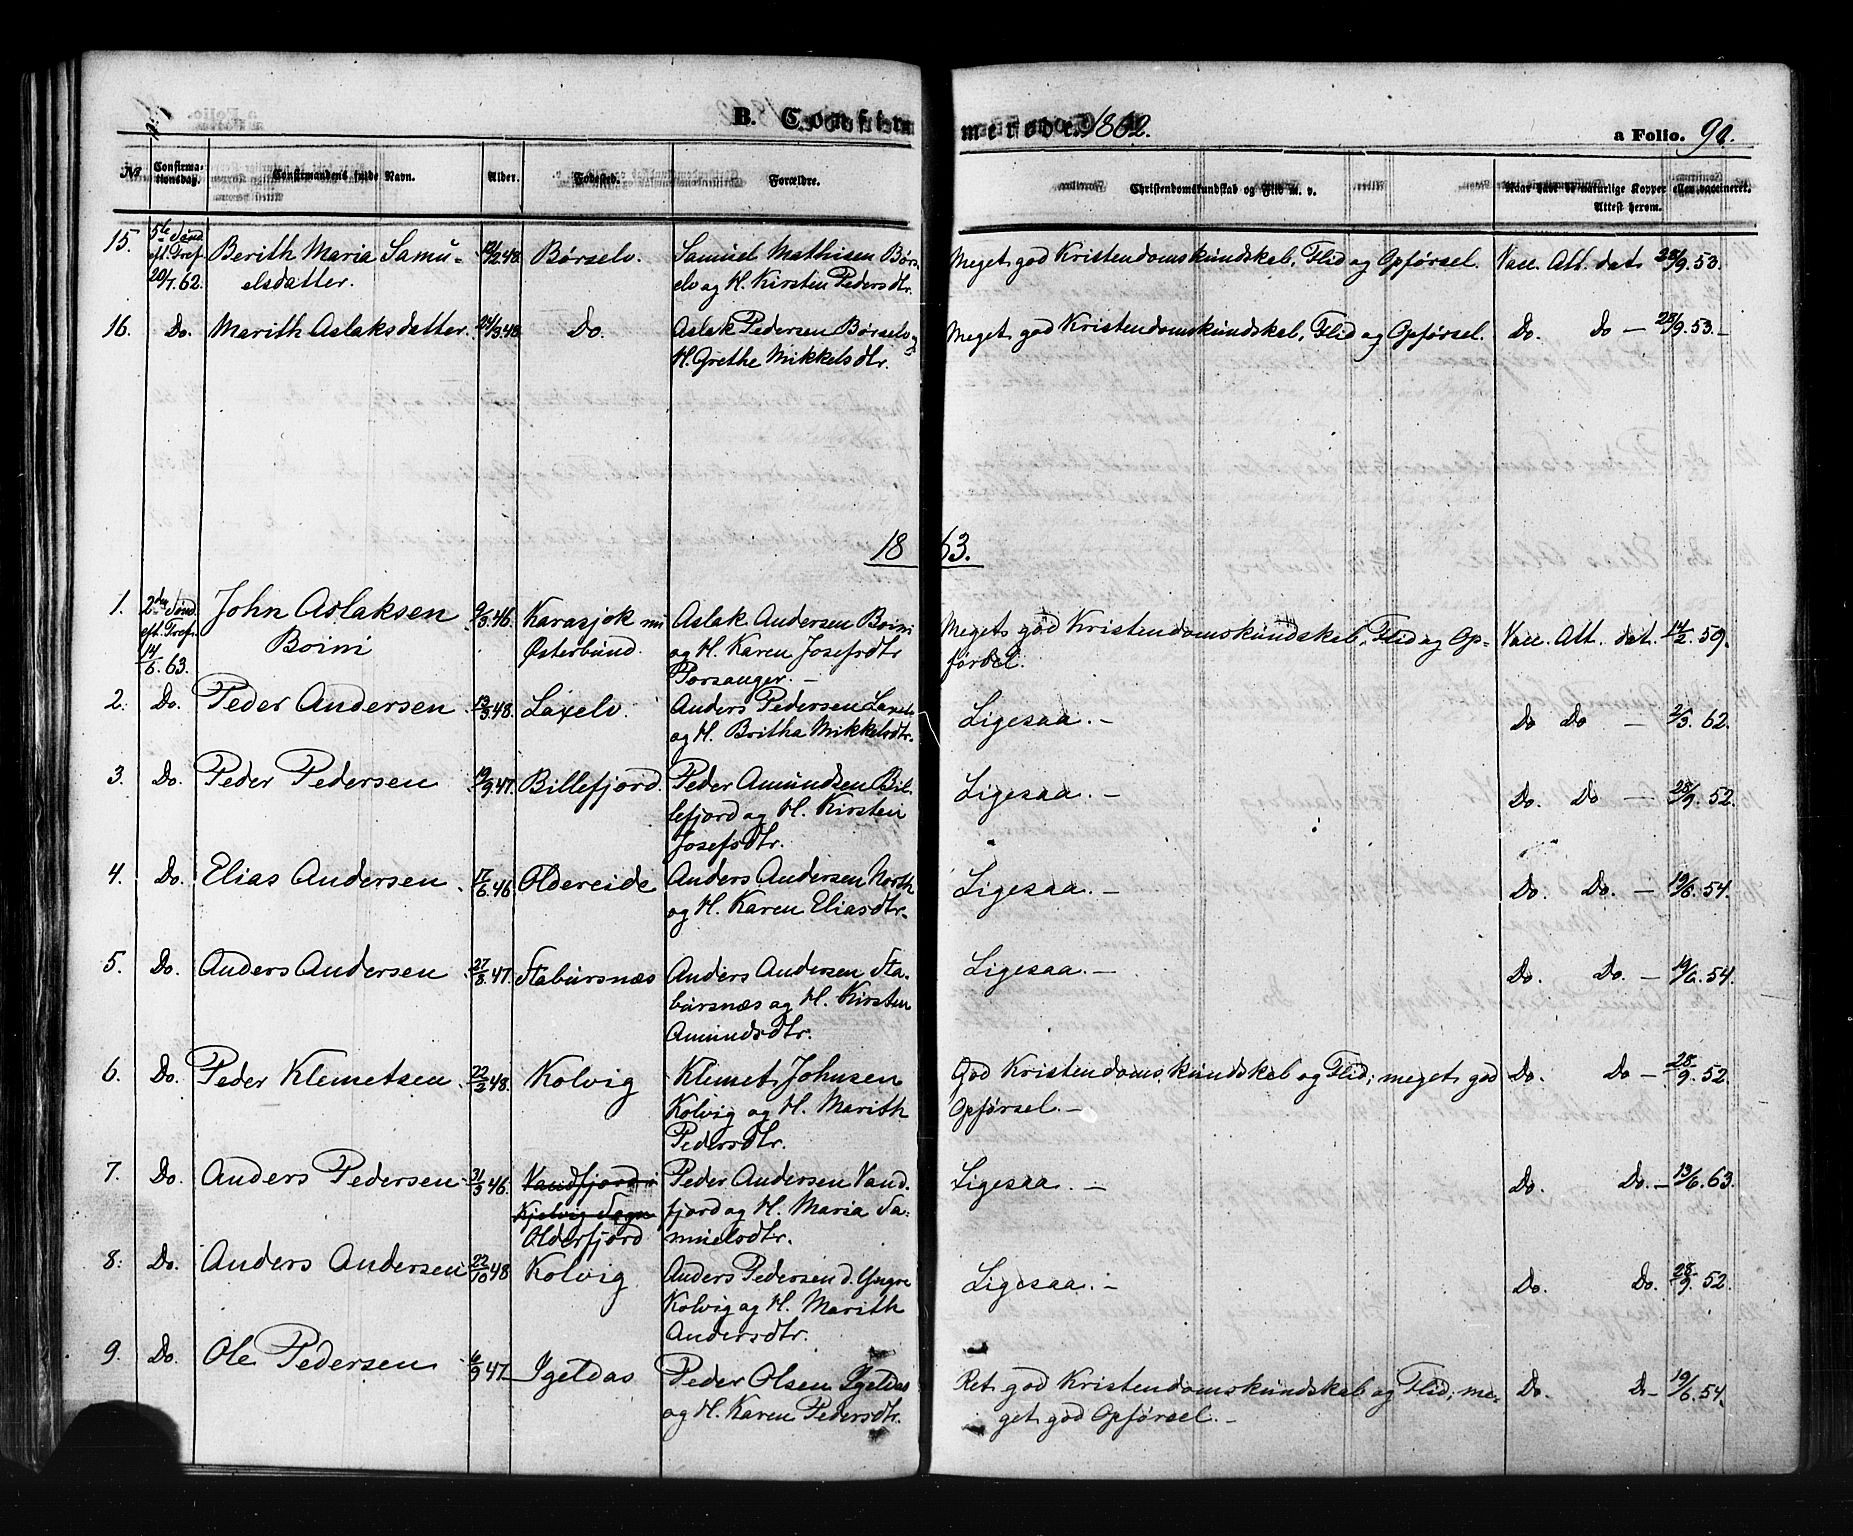 B. Confir merede. 1862. a Folio. 90.
No Confirma-tionsdag. Confirmandens fulde Navn. Alder. Fødested. Forældre. Christendomskundskab og Flid m. v. Naar havt de naturlige Kopper eller vaccineret. Attest herom.
15. 5te Sønd. Berith Maria Samu- 12/2 48. Børselv. Samuel Mathisen Børs- Meget god Kristendomskundskab, Flid og Opførsel. Vacc. Att. dat. 28/9. 53.
eft. Tref. elsdatter. elv og H. Kirsten Pedersdtr.
20/7. 62.
16. Do. Marith Aslaksdatter. 24/3 48. Do. Aslak Pedersen Børselv og Meget god Kristendomskundskab, Flid og Opførsel. Do. Do — 28/9. 53.—
H. Grethe Mikkelsdtr.
18 63.
1. 2den Sønd. John Aslaksen 9/3. 46. Karasjok Aslak Andersen Boini Meget god Kristendomskundskab, Flid og Op- Vacc. Att. dat. 14/2. 59.
eft. Tref. Boini Østerbund. og H. Karen Josefsdtr førsel.
14/6. 63. Porsanger. —
2. Do. Peder Andersen 13/3. 48. Laxelv. Anders Pedersen Laxelv Ligesaa. — Do Do — 2/3. 62.
og H. Britha Mikkelsdtr.
3. Do. Peder Pedersen 19/9. 47. Billefjord. Peder Amundsen Bil- Ligesaa. — Do. Do — 28/9. 52.
lefjord og H. Kirsten
Josefsdtr.
4. Do. Elias Andersen 17/6. 46 Oldereide Anders Andersen North Ligesaa. — Do. Do. — 19/6. 54.
og H. Karen Eliasdtr.
5. Do. Anders Andersen 27/8. 47. Stabursnæs Anders Andersen Sta- Ligesaa. — Do. Do. — 19/6. 54.
bursnæs og H. Kirsten
Amundsdtr.
6. Do. Peder Klemetsen 22/2 48. Kolvig Klemet Johnsen God Kristendomskundskab og Flid; meget god Do. Do — 28/9. 52.
Kolvig og H. Marith Opførsel. —
Pedersdtr.
7. Do. Anders Pedersen 31/3 46. Vandfjord i Peder Andersen Vand- Ligesaa. — Do. Do. — 13/6. 63.
Kjelvig Sogn fjord og H. Maria Sa-
Olderfjord muelsdtr.
8. Do. Anders Andersen 22/10 48 Kolvig Anders Pedersen d. Yngre Ligesaa. — Do. Do. 28/9. 52.
Kolvig og H. Marith
Andersdtr.
9. Do. Ole Pedersen 6/9 47. Igeldas Peder Olsen Igeldas Ret god Kristendomskundskab og Flid; me- Do. D — 19/6. 54.
og H. Karen Pedersdtr. get god Opførsel. —